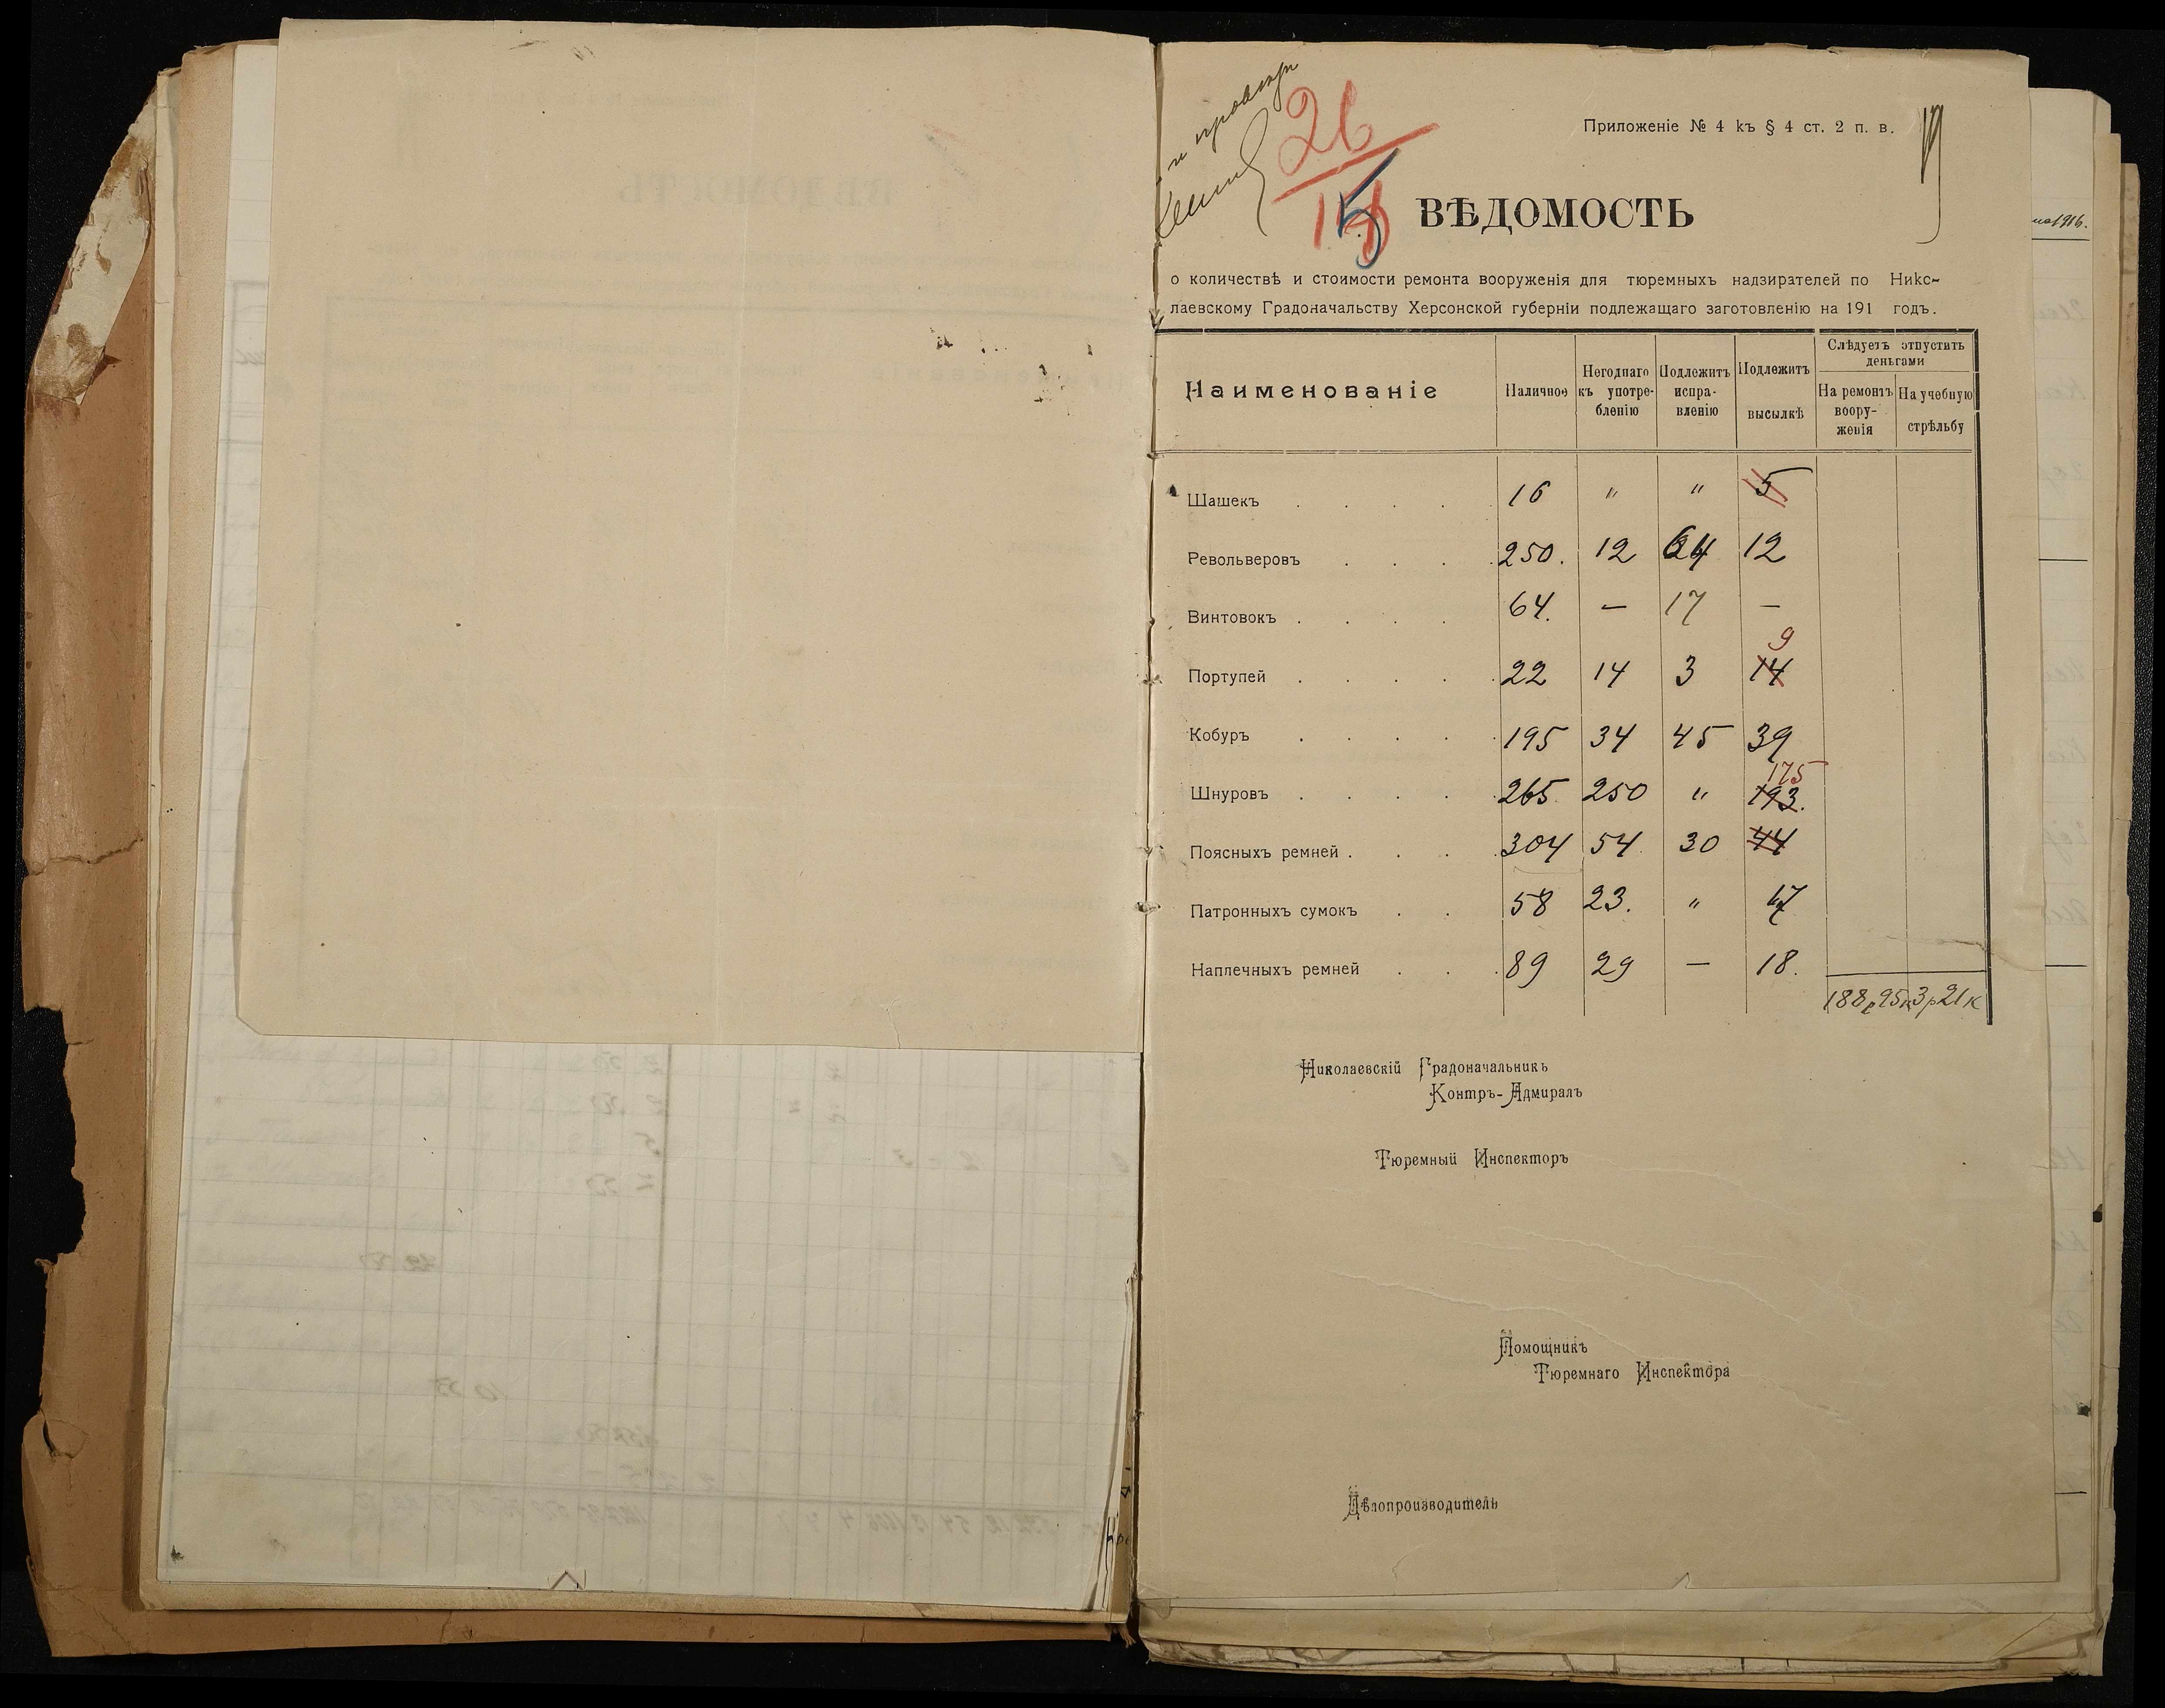 и провер
26
15
Приложеніе № 4 къ § 4 ст. 2 п. в.
ВѢДОМОСТЬ
о количествѣ и стоимости ремонта вооруженія для тюремныхъ надзирателей по Нико-
лаевскому Градоначальству Херсонской губерніи подлежащаго заготовленію на 191 годъ.
Наименованіе Наличное Негоднаго къ употре- бленію Подлежитъ испра- вленію Подлежитъ высылкѣ Слѣдуетъ отпустить деньгами На ремонтъ воору- женія На учебную стрѣльбу
Шашекъ . . . . 16 " " 5
Револьверовъ . . . . 250. 12 64 12
Винтовокъ . . . . 64. — 17 —
9
Портупей . . . . . 22 14 3 14
Кобуръ . . . . . 195 34 45 39
175
Шнуровъ . . . . . 265 250 " 193.
Поясныхъ ремней . . . . 304 54 30 44
Патронныхъ сумокъ . . 58 23. " 17
Наплечныхъ ремней . . . 89 29 — 18.
188 р 95 к 3 р 21 к
Николаевскій Градоначальникъ
Контръ-Адмиралъ
Тюремный Инспекторъ
Помощникъ
Тюремнаго Инспектора
Дѣлопроизводитель
1916.